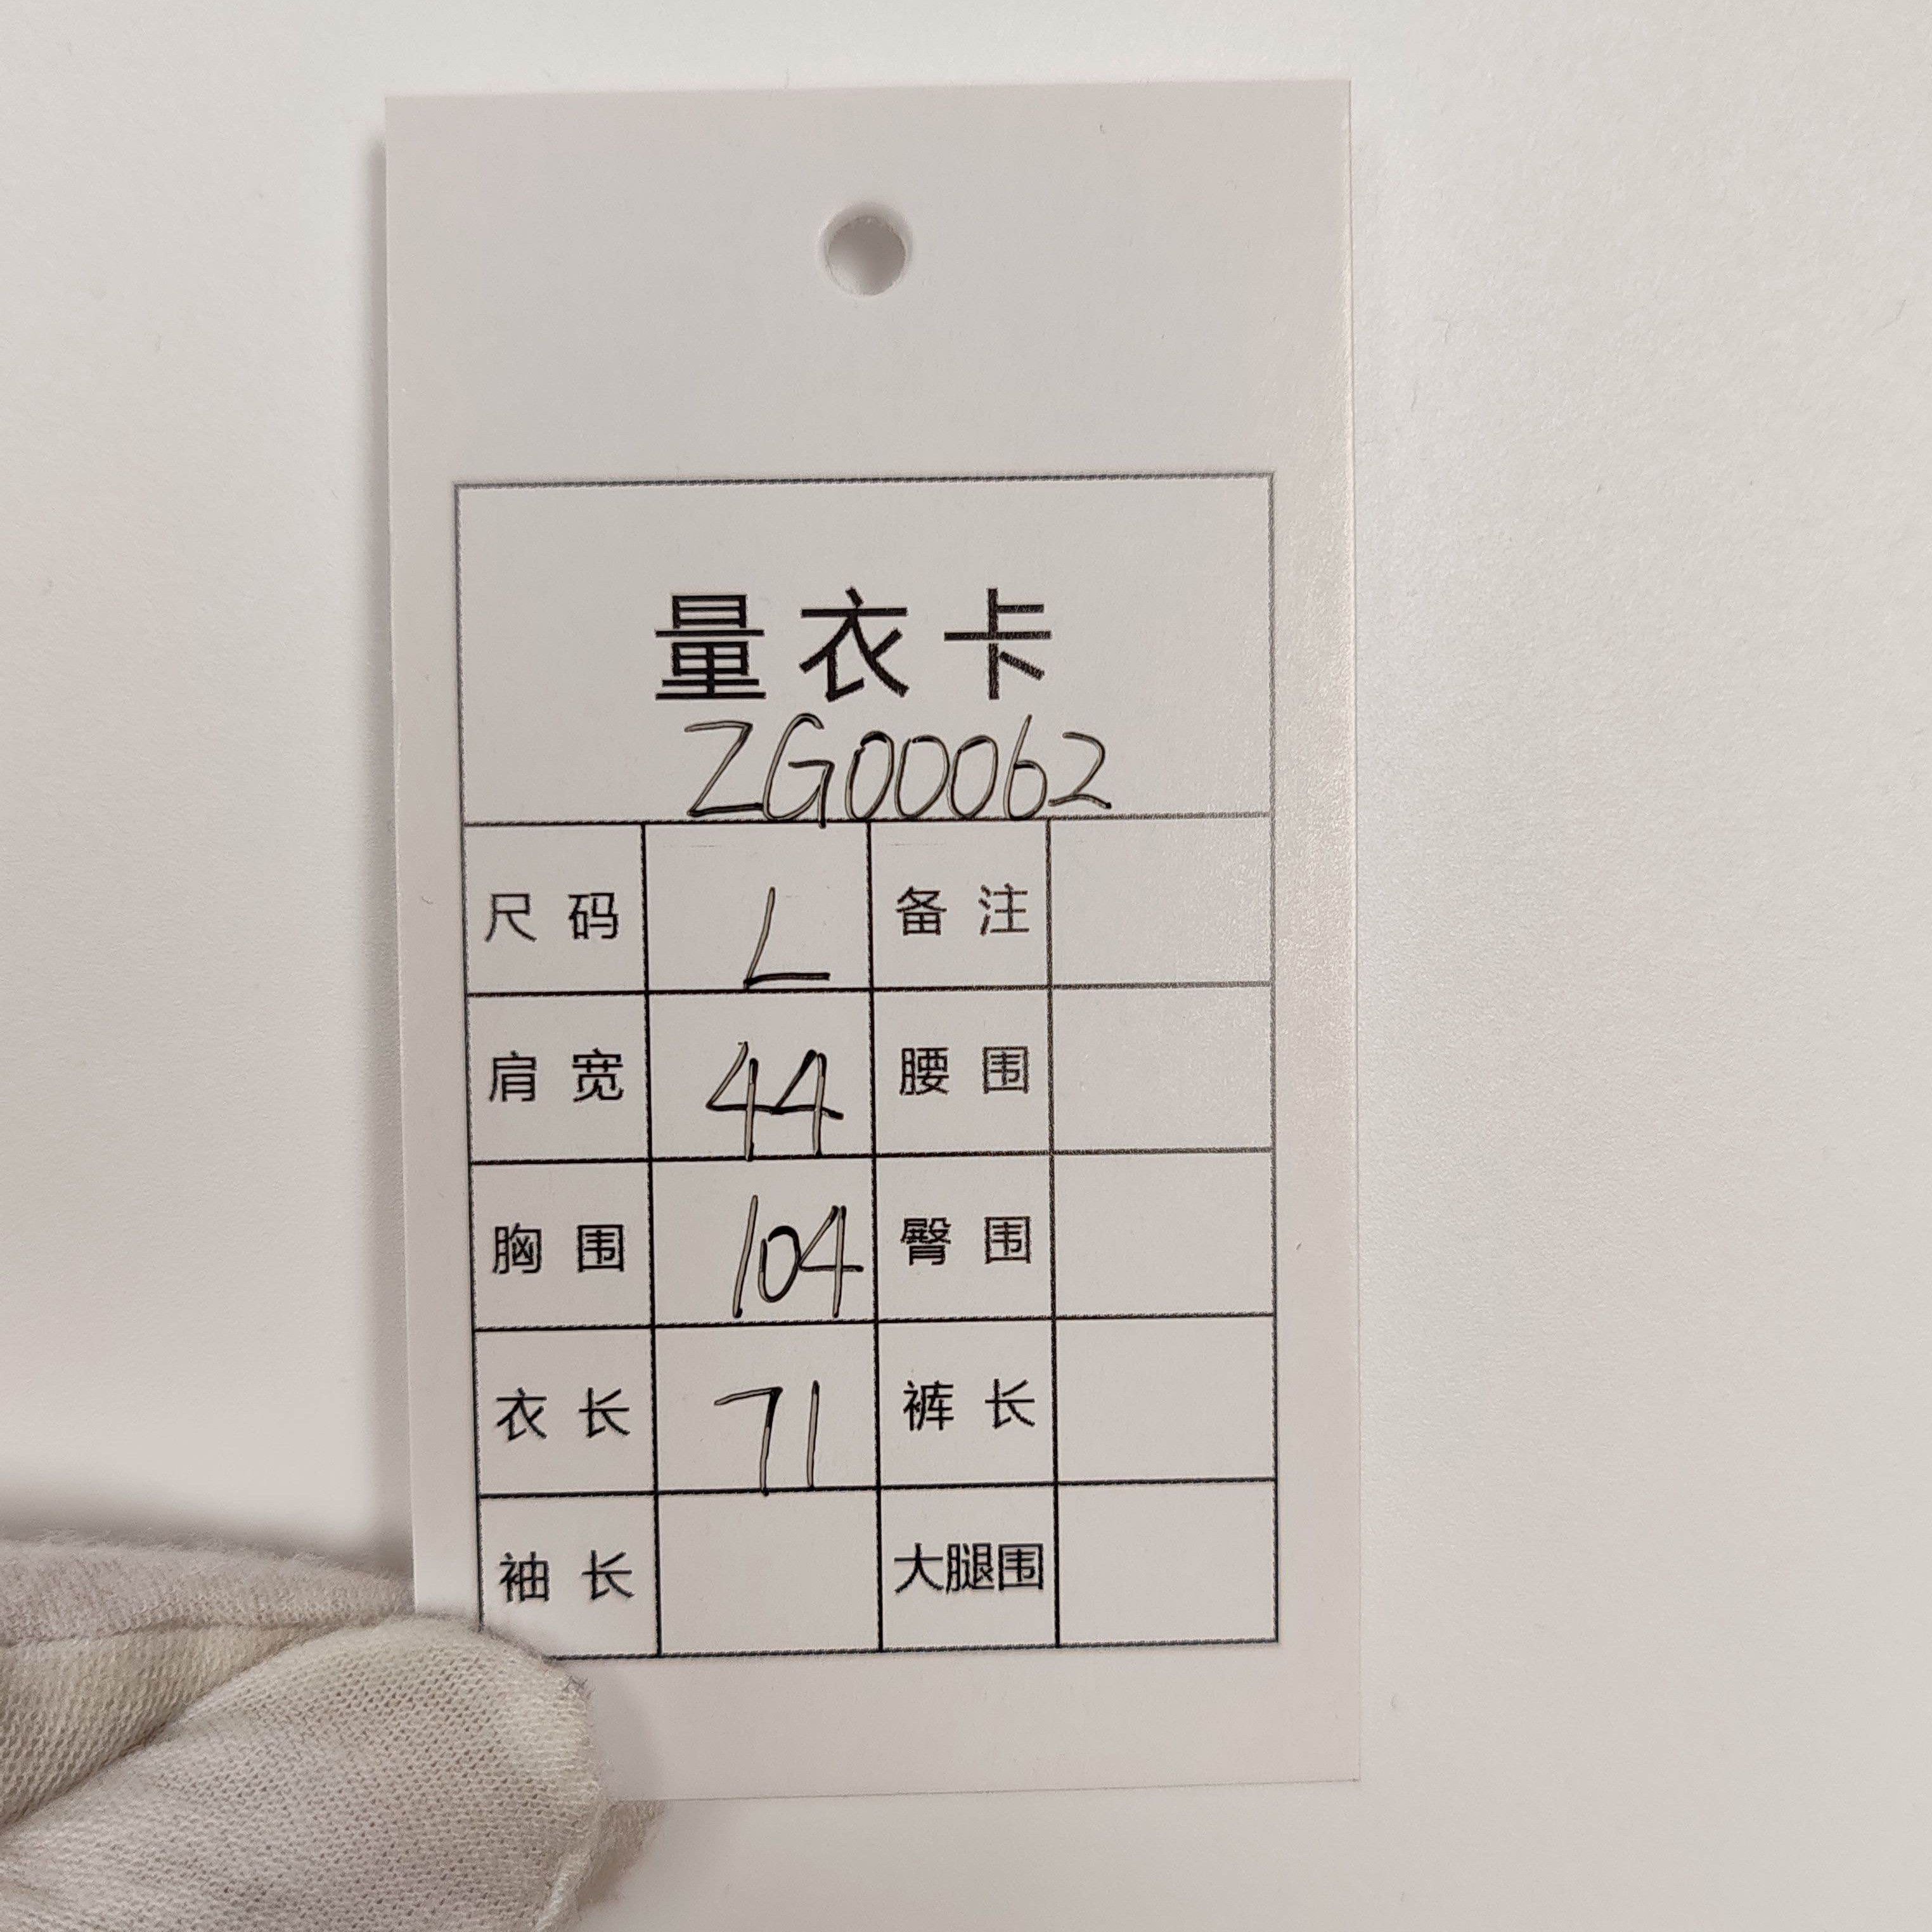 量衣卡
ZG00062
尺码 L 备注
肩宽 44 腰围
胸围 104 臀围
衣长 71 裤长
袖长 大腿围